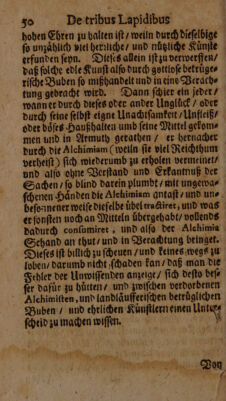 50 De tribus Lapidibus
hohen Ehren zu halten ist / weiln durch dieselbige
so unzählich viel herzliche / und nützliche Künste
erfunden seyn. Dieses allein ist zu verwerffen /
daß solche edle Kunst also durch gottlose betrüge-
rische Buben so mißhandelt und in eine Verach-
tung gebracht wird. Dann schier ein jeder /
wann er durch dieses oder ander Unglück / oder
durch seine selbst eigne Unachtsamkeit / Unfleiß /
oder böses Haußhalten umb seine Mittel gekom-
men und in Armuth gerathen / er hernacher
durch die Alchimiam (weiln sie viel Reichthum
verheist) sich wiederumb zu erholen vermeinet /
und also ohne Verstand und Erkantnuß der
Sachen / so blind darein plumbt / mit ungewa-
schenen Händen die Alchimiam antast / und un-
besonnener weise dieselbe übel tractiret, und was
er sonsten noch an Mitteln übergehabt / vollends
dadurch consumiret, und also der Alchimia
Schand an thut / und in Verachtung bringet.
Dieses ist billich zu scheuen / und keines wegs zu
loben / darumb nicht schaden kan / daß man die
Fehler der Unwissenden anzeige / sich desto bes-
ser dafür zu hütten / und zwischen verdorbenen
Alchimisten, und landläufferischen betrüglichen
Buben / und ehrlichen Künstlern einen Unter-
scheid zu machen wissen.
Von